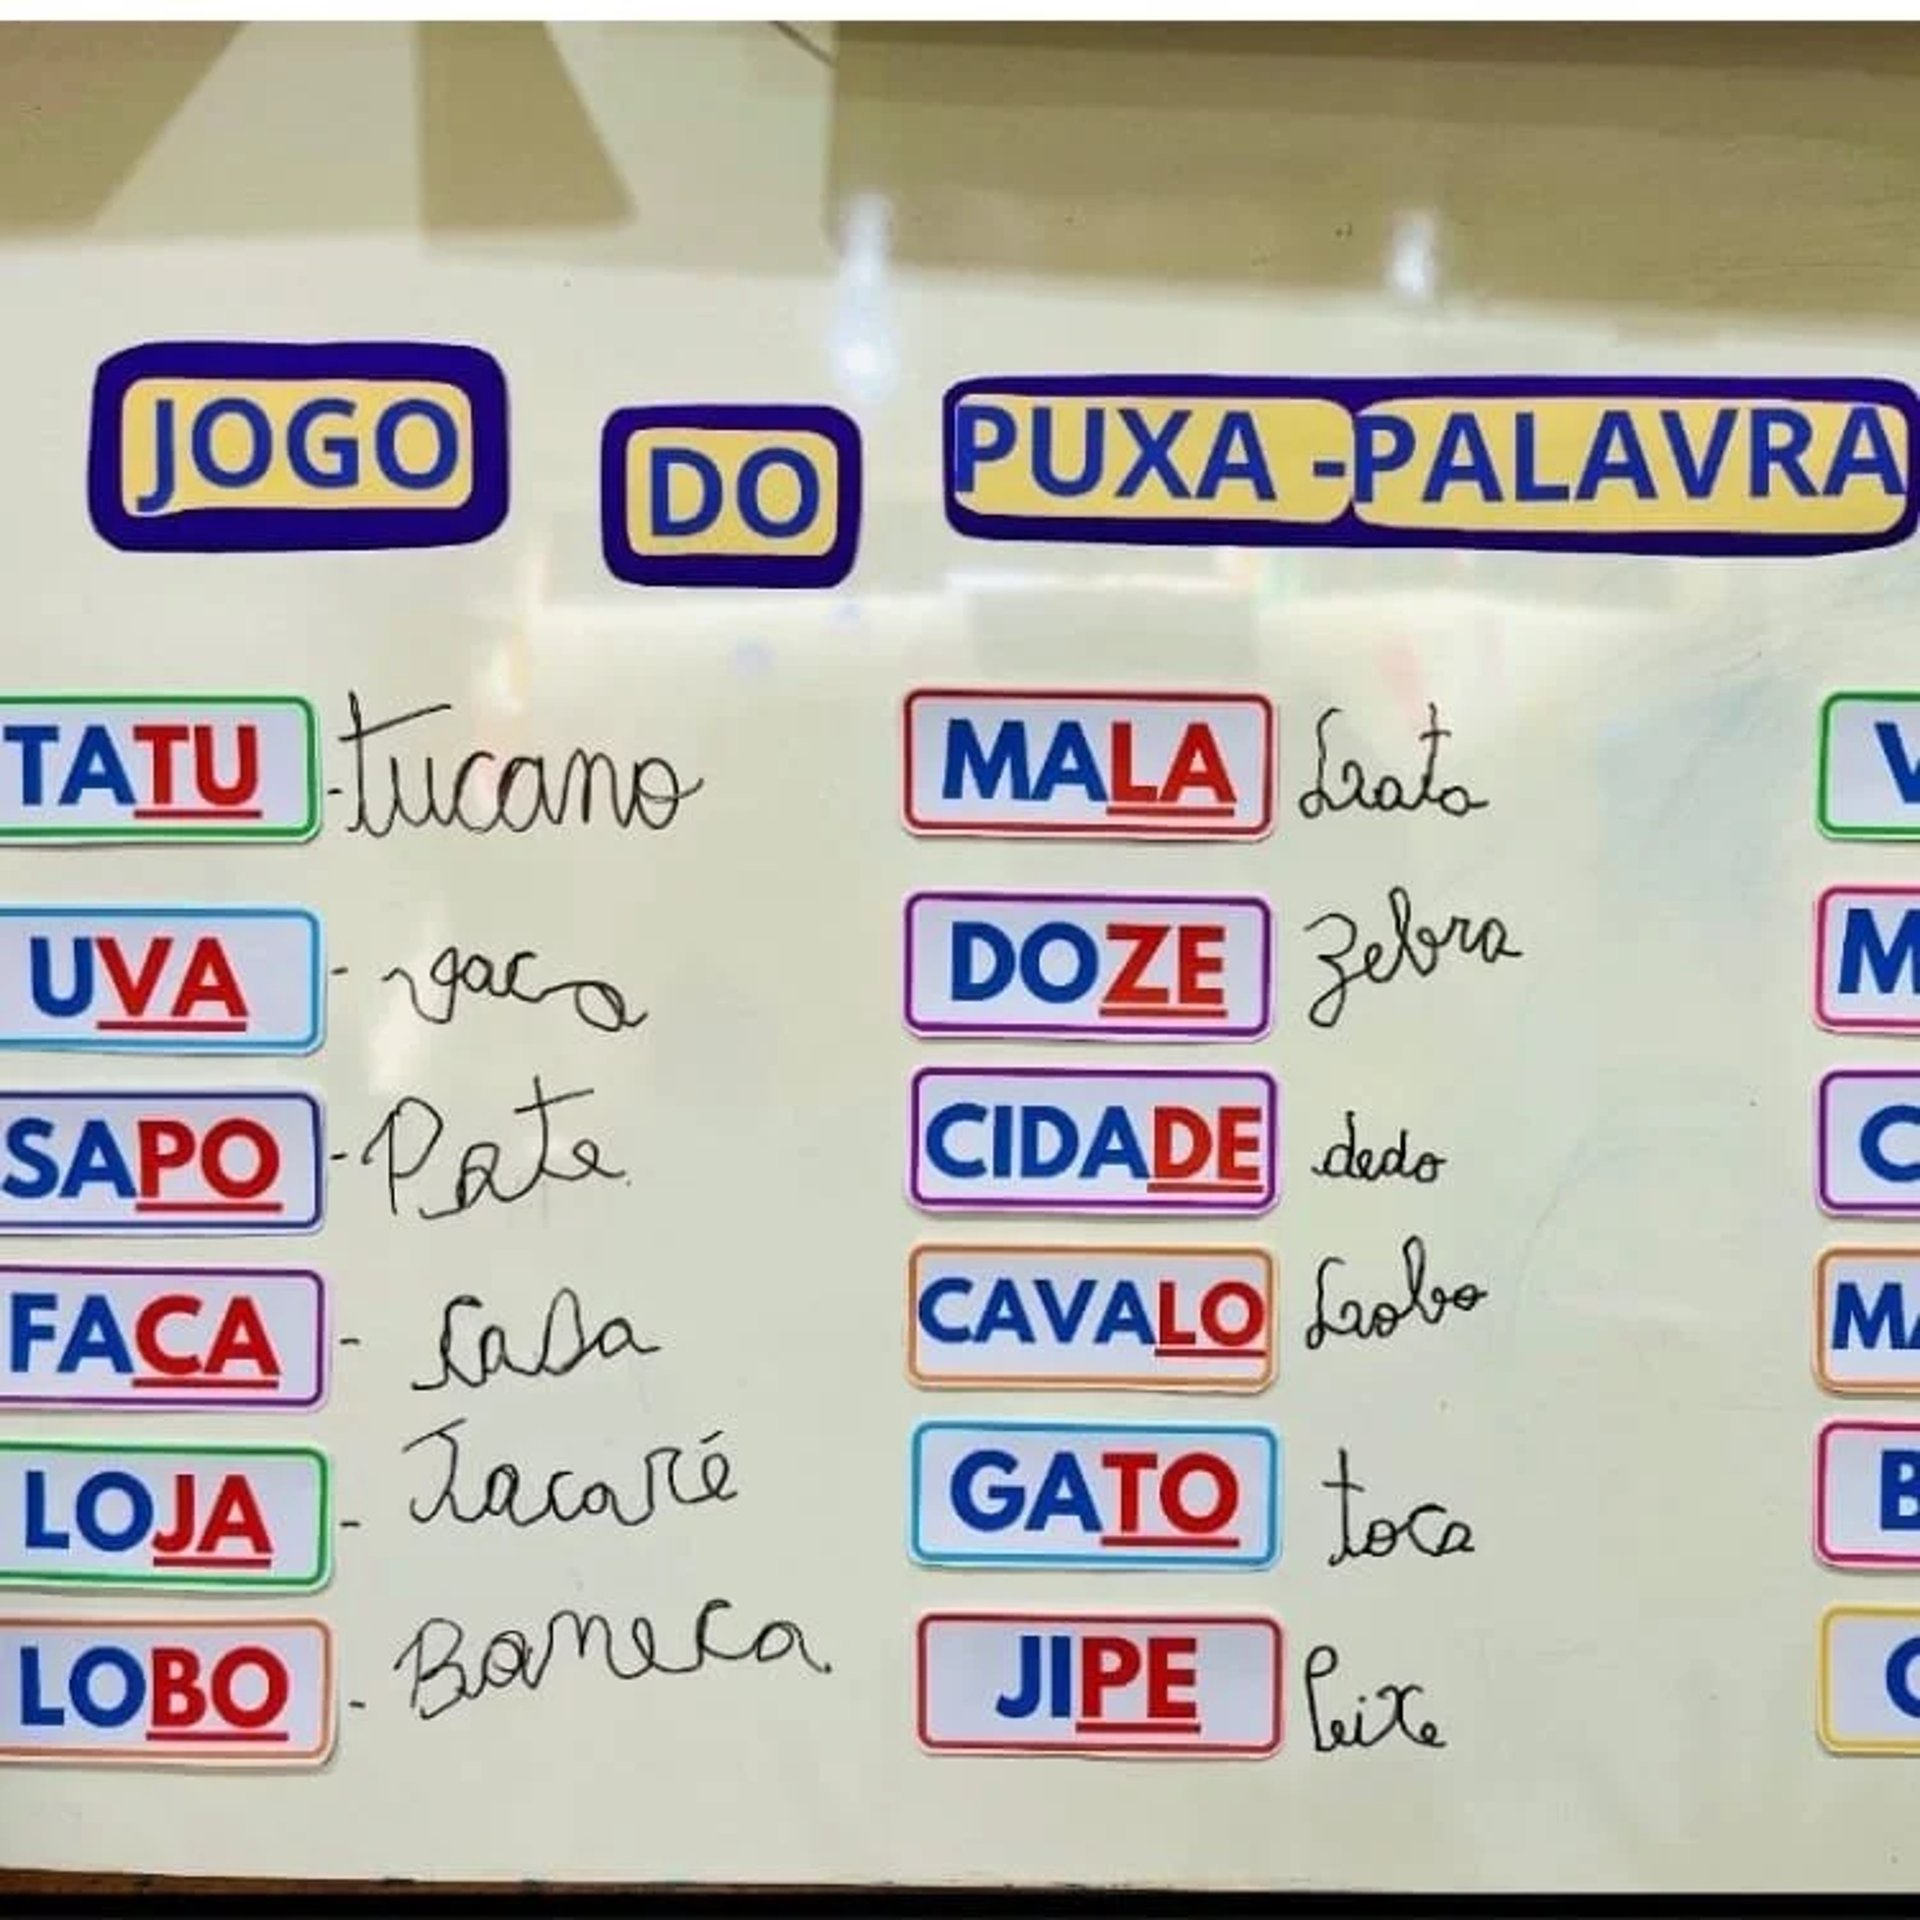 JOGO DO PUXA-PALAVRA
TATU - tucano
UVA - vaca
SAPO - Pote
FACA - casa
LOJA - Jacaré
LOBO - Boneca
MALA Lata
DOZE zebra
CIDADE dedo
CAVALO Lobo
GATO toca
JIPE Peixe
V
M
C
MA
B